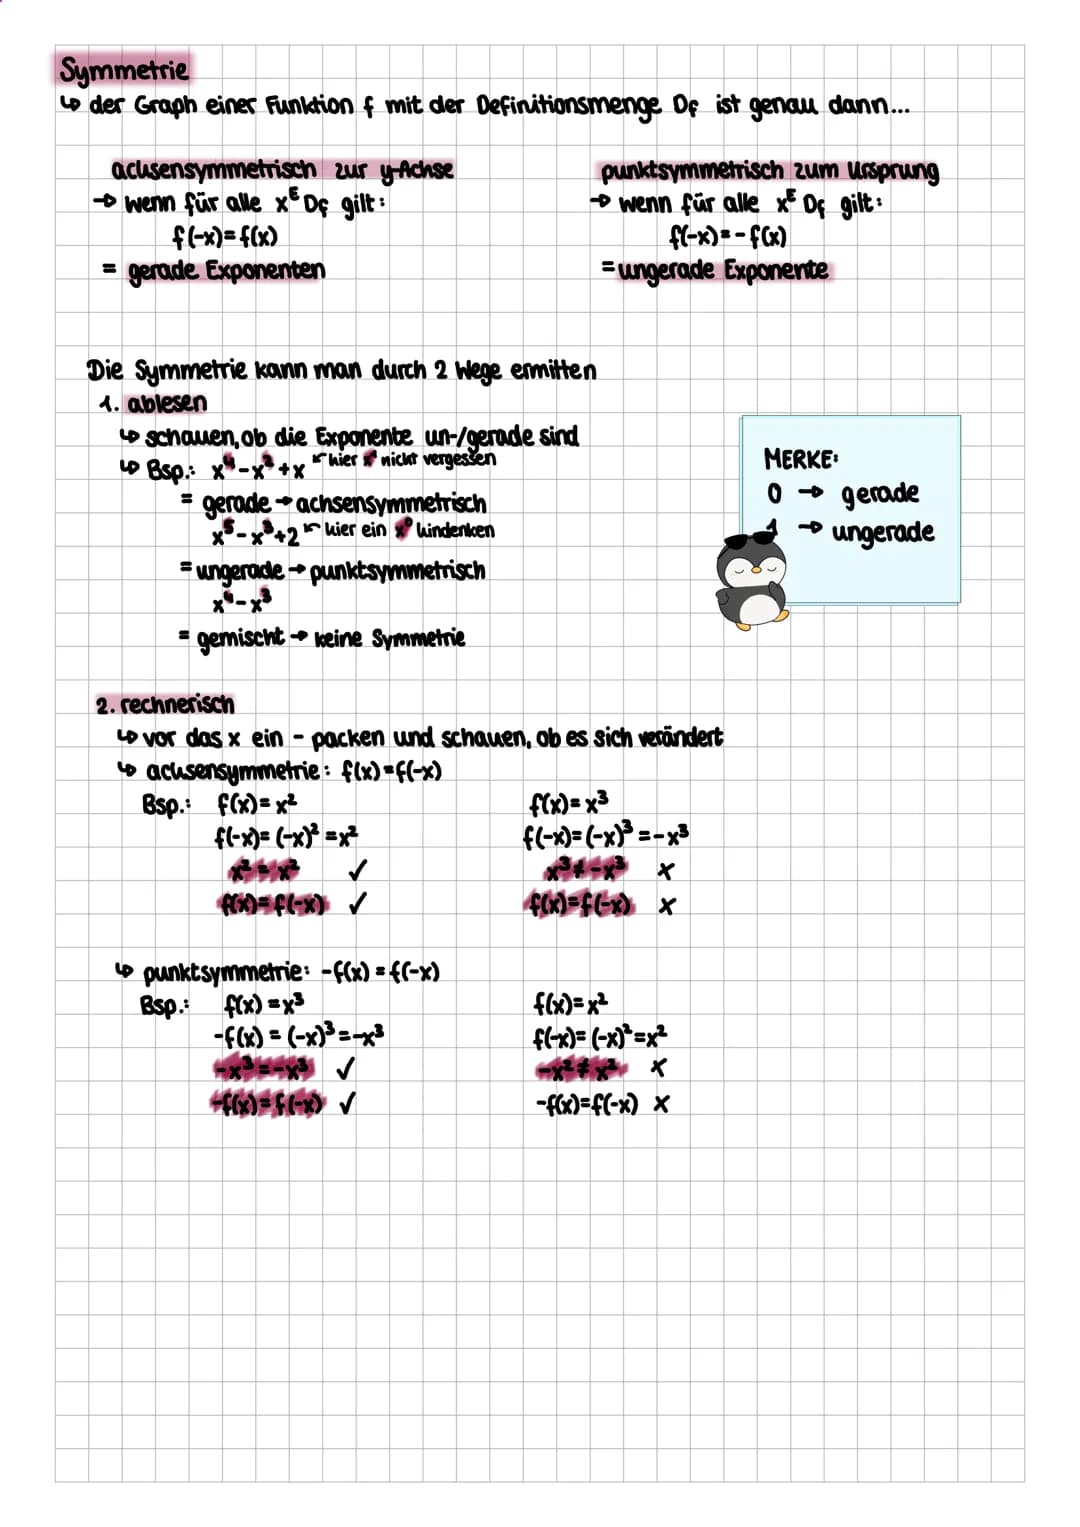 Symmetrie
↳ der Graph einer Funktion f mit der Definitionsmenge Df ist genau dann...
achsensymmetrisch zur y-Achse
→ wenn für alle x ∈ Df gilt:
f(-x)=f(x)
= gerade Exponenten
punktsymmetrisch zum Ursprung
→ wenn für alle x ∈ Df gilt:
f(-x)=-f(x)
= ungerade Exponente
Die Symmetrie kann man durch 2 Wege ermitten
1. ablesen
↳ schauen, ob die Exponente un-/gerade sind
↳ Bsp.: x⁴-x²+x ↖ hier x¹ nicht vergessen
= gerade → achsensymmetrisch
x⁵-x³+2 ↖ hier ein x⁰ hindenken
= ungerade → punktsymmetrisch
x⁴-x³
= gemischt → keine Symmetrie
MERKE:
0 → gerade
1 → ungerade
2. rechnerisch
↳ vor das x ein - packen und schauen, ob es sich verändert
↳ achsensymmetrie: f(x)=f(-x)
Bsp.: f(x)=x²
f(-x)=(-x)²=x²
x²=x² ✓
f(x)=f(-x) ✓
f(x)=x³
f(-x)=(-x)³=-x³
x³≠-x³ x
f(x)=f(-x) x
↳ punktsymmetrie: -f(x)=f(-x)
Bsp.: f(x)=x³
-f(x)=(-x)³=-x³
-x³=-x³ ✓
-f(x)=f(-x) ✓
f(x)=x²
f(-x)=(-x)²=x²
-x²≠x² x
-f(x)=f(-x) x